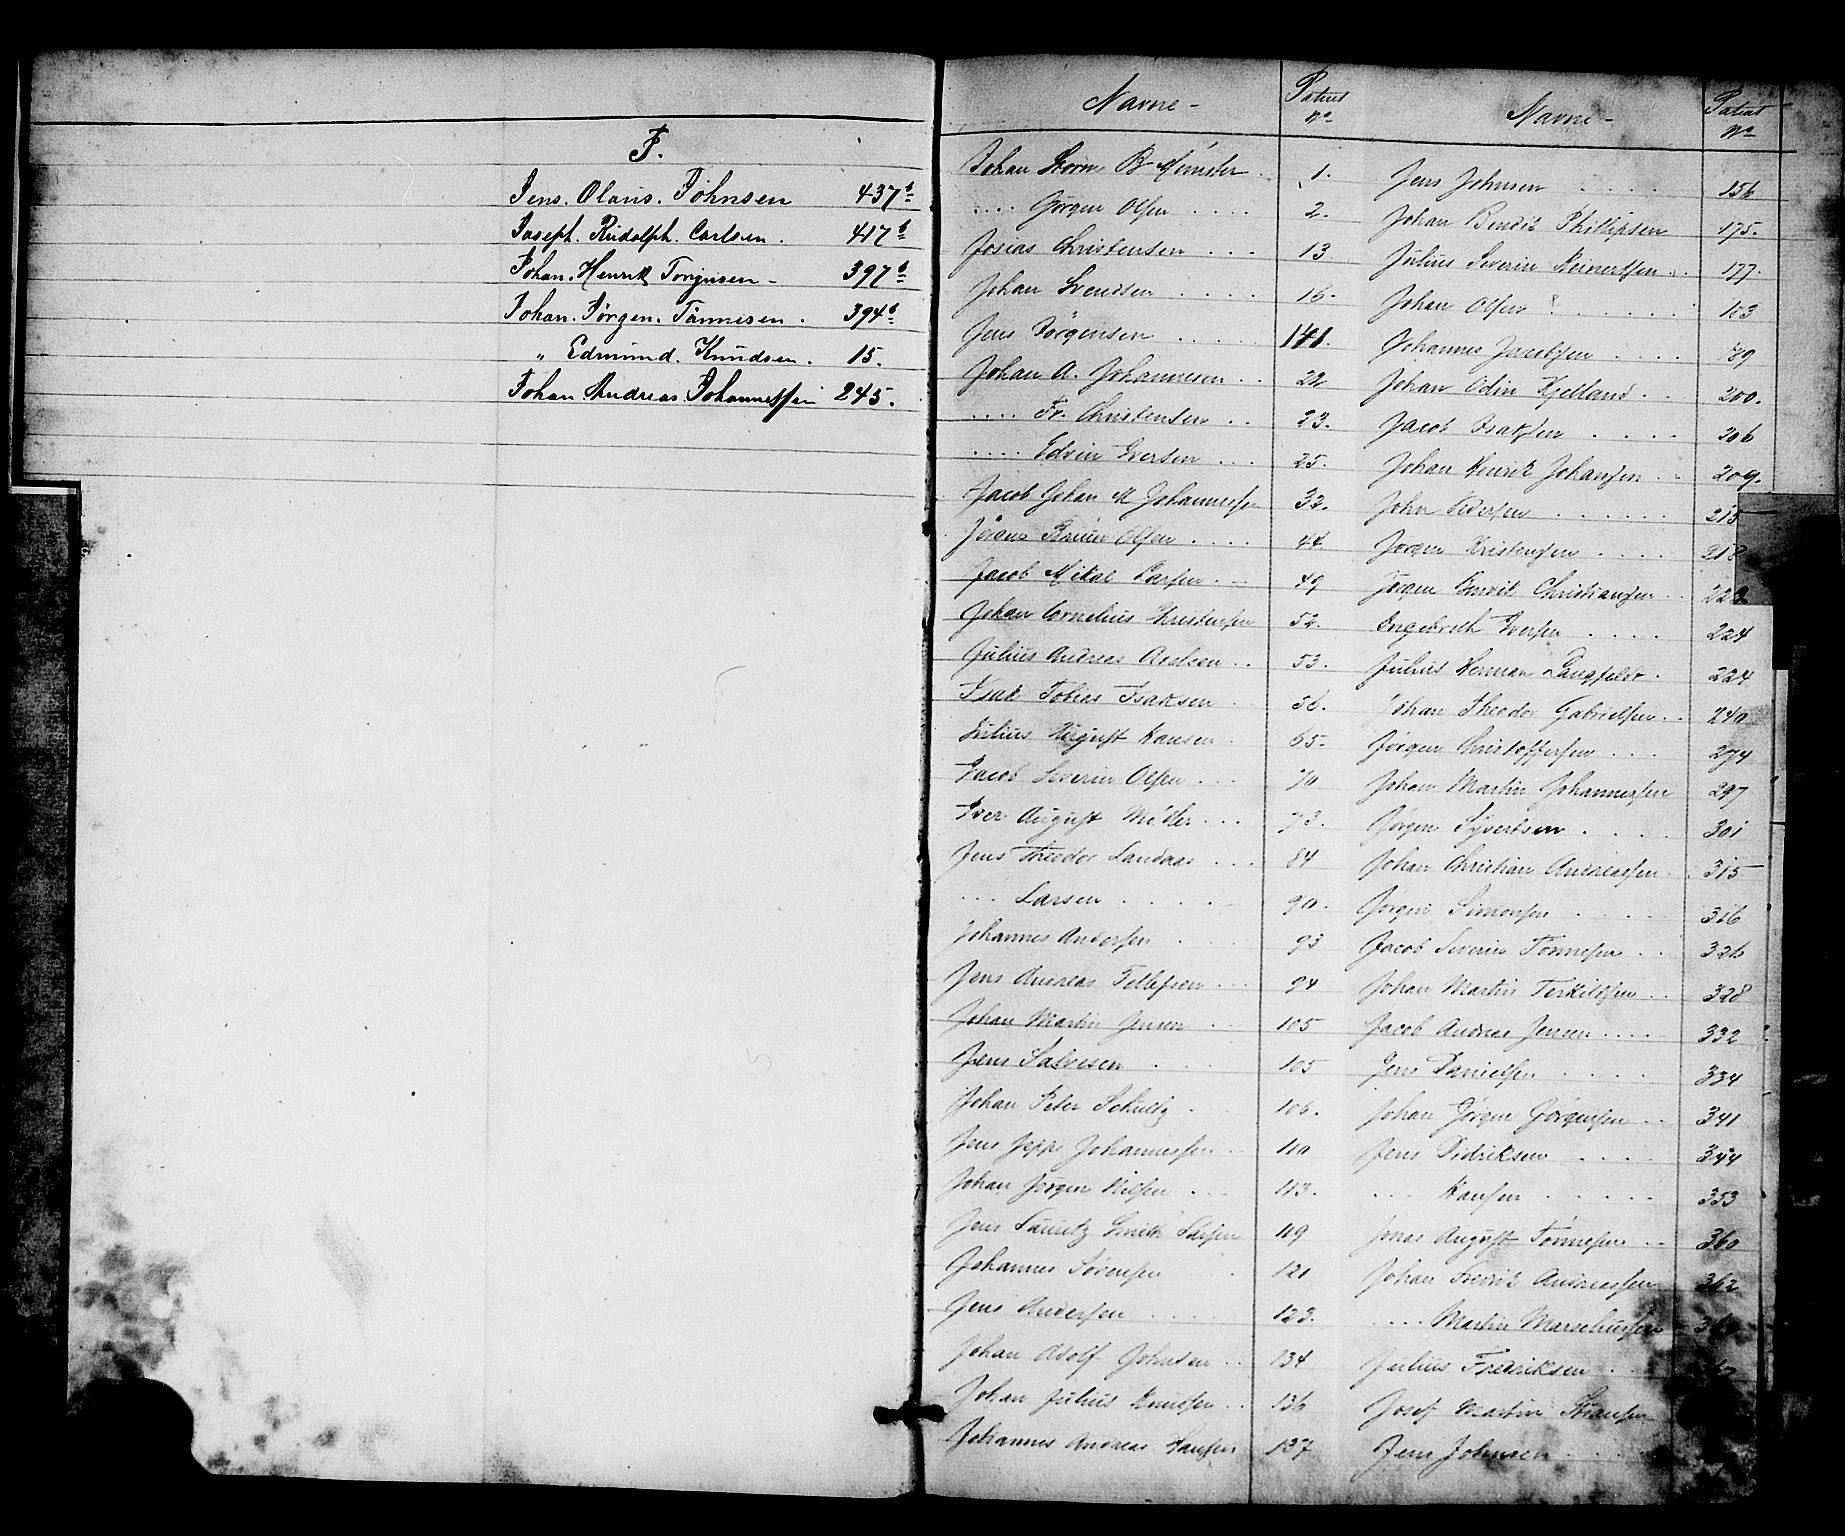 J.
Jens. Olaus. Johnsen 437 b
Joseph. Rudolph. Carlsen. 417 b
Johan. Henrik Torjusen - 397 b
Johan. Jørgen. Tönnesen. 394 b
„ Edmund. Knudsen. 15.
Johan Andreas Johannessen 245.
Navne - Patent No
Johan Storm B Münster 1.
.... Gørgen Olsen .... 2.
Josias Christensen ... 13.
Johan Svendsen .... 16.
Jens Jørgensen ..... 141.
Johan A. Johannesen .. 22
.... Fr. Christensen .. 23.
.... Edvin Iversen ... 25.
Jacob Johan M Johannessen 32.
Jörgen Bruun Olsen .... 44.
Jacob Mikal Larsen ... 49
Johan Cornelius Christensen 52.
Julius Andreas Axelsen .. 53.
Isak Tobias Isaksen . 56.
Julius August Hansen . 65.
Jacob Severin Olsen ... 70
Iver August Möller ... 73.
Jens Theodor Landaas ... 84
... Larsen ..... 90.
Johannes Andersen . 93
Jens Andreas Tellefsen ... 94
Johan Martin Jensen . 105
Jens Salvesen .... 105
Johan Peter Schultz . 106.
Jens Jeppe Johannessen .. 110
Johan Jørgen Nilsen ... 113.
Jens Lauritz Smith Larsen 119
Johannes Sørensen . 121
Jens Andersen .... 123.
Johan Adolf Johnsen .. 134
Johan Julius Knudsen .. 136
Johannes Andreas Hansen 137
Navne - Patent No
Jens Johnsen .... 156
Johan Bendik Phillipsen 175.
Julius Severin Reinertsen .. 177.
Johan Olsen ...... 183
Johannes Jacobsen .... 189
Johan Odin Kjelland .. 200.
Jacob Isaksen .... 206
Johan Henrik Johansen .. 209.
John Pedersen ...... 215
Jørgen Kristensen .... 218
Jørgen Henrik Christiansen ..
Ingebreth Iversen .... 224
Julius Herman Langfeldt . 224
Johan Theodor Gabrielsen .. 240
Jørgen Christoffersen ... 274
Johan Martin Johannessen 297
Jørgen Syvertsen .... 301
Johan Christian Andreassen . 315
Jørgen Simonsen .... 316
Jacob Severin Tønnesen .. 326
Johan Martin Terkildsen .. 328
Jacob Andreas Jensen .... 332
Jens Danielsen ..... 334
Johan Jørgen Jørgensen .. 341
Jens Didriksen .... 344
... Hansen ..... 353
Jonas August Tønnesen .. 360
Johan Fredrik Andreassen 362
.... Martin Marseliussen
Julius Fredriksen ..
Josef Martin
Jens Johnsen